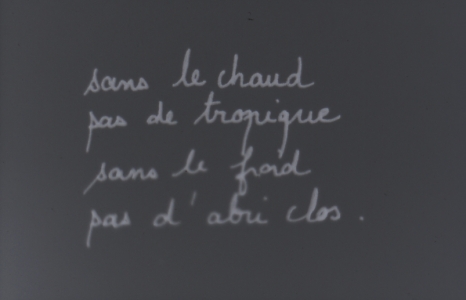 sans le chaud
pas de tropique
sans le froid
pas d'abri clos.